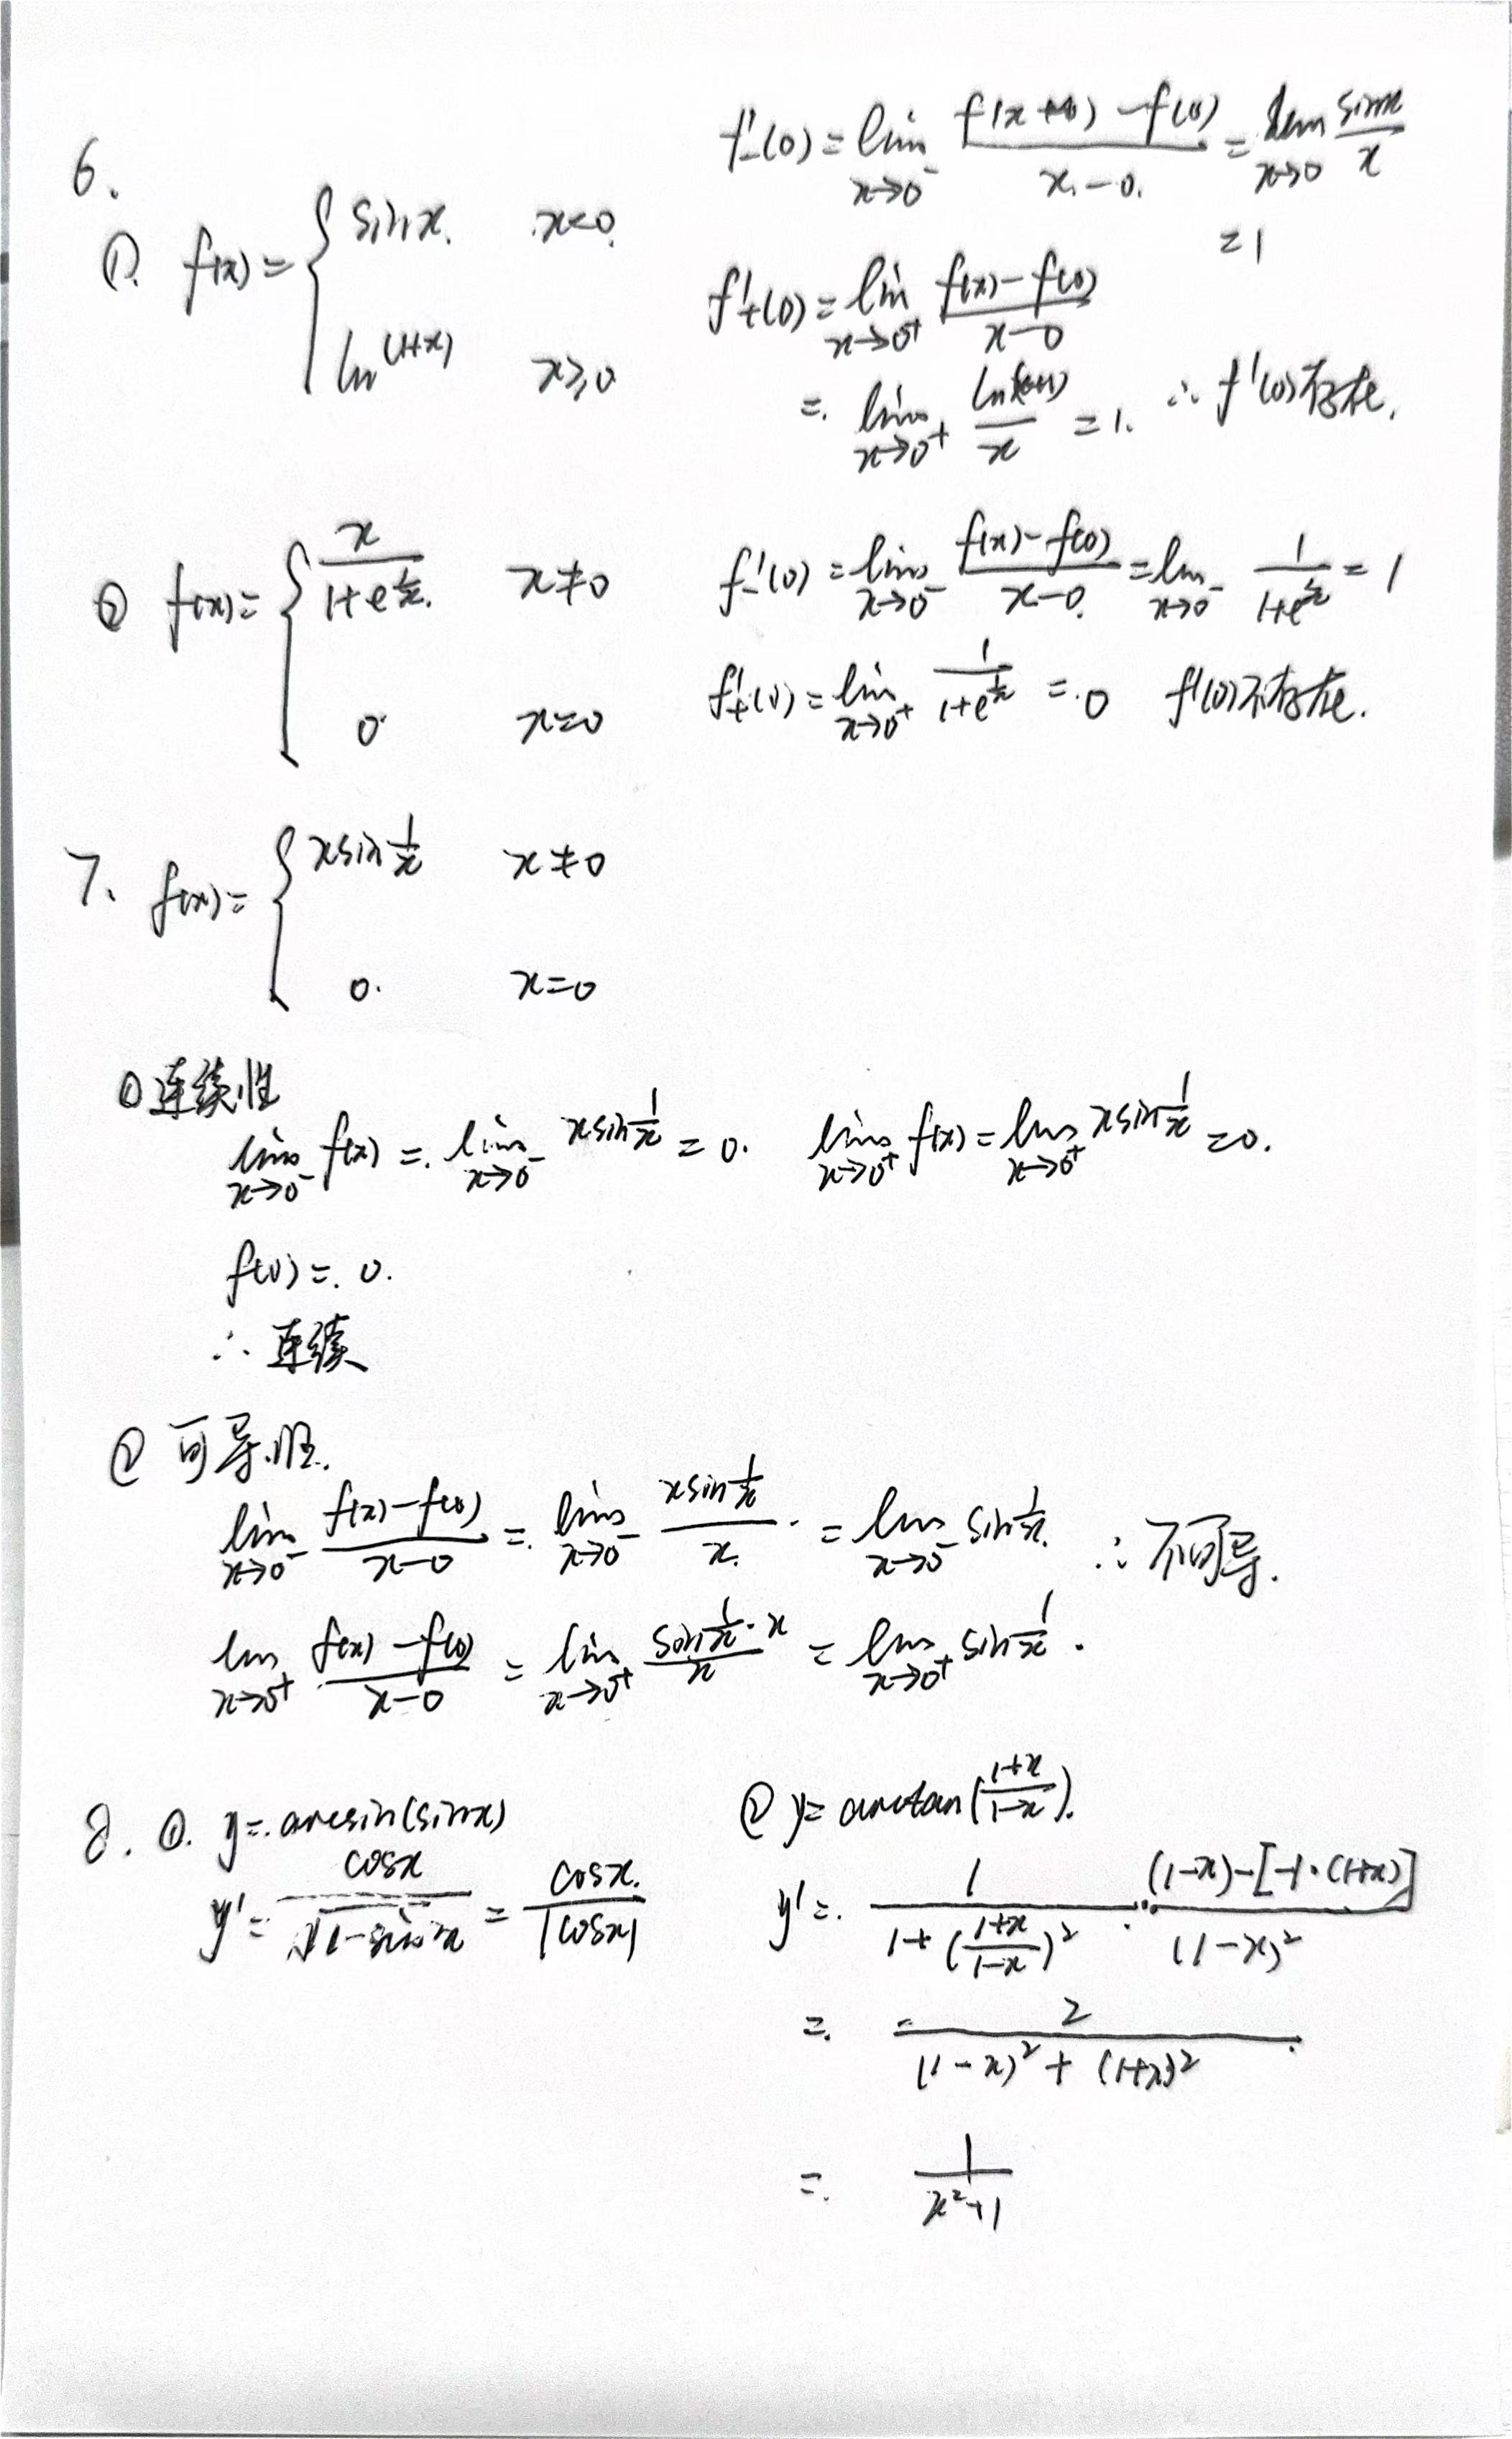 6.
① f(x)= { sinx. x<0.
ln(1+x) x≥0
f'₋(0)=lim x→0⁻ f(x+0)-f(0) / x-0. = lim x→0 sinx/x
=1
f'₊(0)=lim x→0⁺ f(x)-f(0) / x-0
= lim x→0⁺ ln(x+1)/x =1. ∴ f'(0)存在.
② f(x)= { x/(1+e^(1/x)). x≠0
0 x=0
f'₋(0)=lim x→0⁻ f(x)-f(0) / x-0 = lim x→0⁻ 1/(1+e^(1/x)) = 1
f'₊(0)=lim x→0⁺ 1/(1+e^(1/x)) =.0 f'(0)不存在.
7. f(x)= { xsin1/x x≠0
0. x=0
①连续性
lim x→0⁻ f(x)=. lim x→0⁻ xsin1/x =0. lim x→0⁺ f(x)=lim x→0⁺ xsin1/x =0.
f(0)=.0.
∴ 连续
② 可导性.
lim x→0⁻ f(x)-f(0) / x-0 = lim x→0⁻ xsin1/x / x. = lim x→0⁻ sin1/x. ∴不可导.
lim x→0⁺ f(x)-f(0) / x-0 = lim x→0⁺ sin1/x·x / x = lim x→0⁺ sin1/x.
8. ①. y=.arcsin(sinx)
y'= cosx / √(1-sin²x) = cosx. / |cosx|
② y= arctan((1+x)/(1-x)).
y'=. 1 / (1+((1+x)/(1-x))²) · (1-x)-[-1·(1+x)] / (1-x)²
=. 2 / ((1-x)²+(1+x)²)
=. 1 / (x²+1)